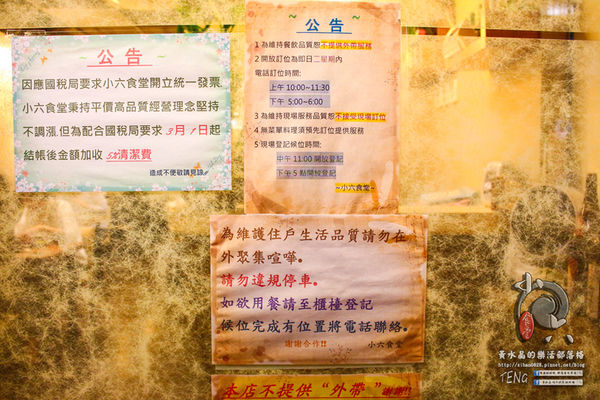 ~ 公告 ~
因應國稅局要求小六食堂開立統一發票
小六食堂秉持平價高品質經營理念堅持
不調漲,但為配合國稅局要求 3月1日起
結帳後金額加收 5%清潔費
造成不便敬請見諒
~ 公告 ~
1 為維持餐飲品質恕不提供外帶服務
2 開放訂位為即日二星期內
電話訂位時間:
上午 10:00~11:30
下午 5:00~6:00
3 為維持現場服務品質恕不接受現場訂位
4 無菜單料理須預先訂位提供服務
5 現場登記候位時間:
中午 11:00 開放登記
下午 5 點開放登記
~小六食堂~
為維護住戶生活品質請勿在
外聚集喧嘩。
請勿違規停車。
如欲用餐請至櫃檯登記
候位完成有位置將電話聯絡。
謝謝合作!! 小六食堂
本店不提供“外帶”謝謝!!
黃水晶的樂活部落格
TENG